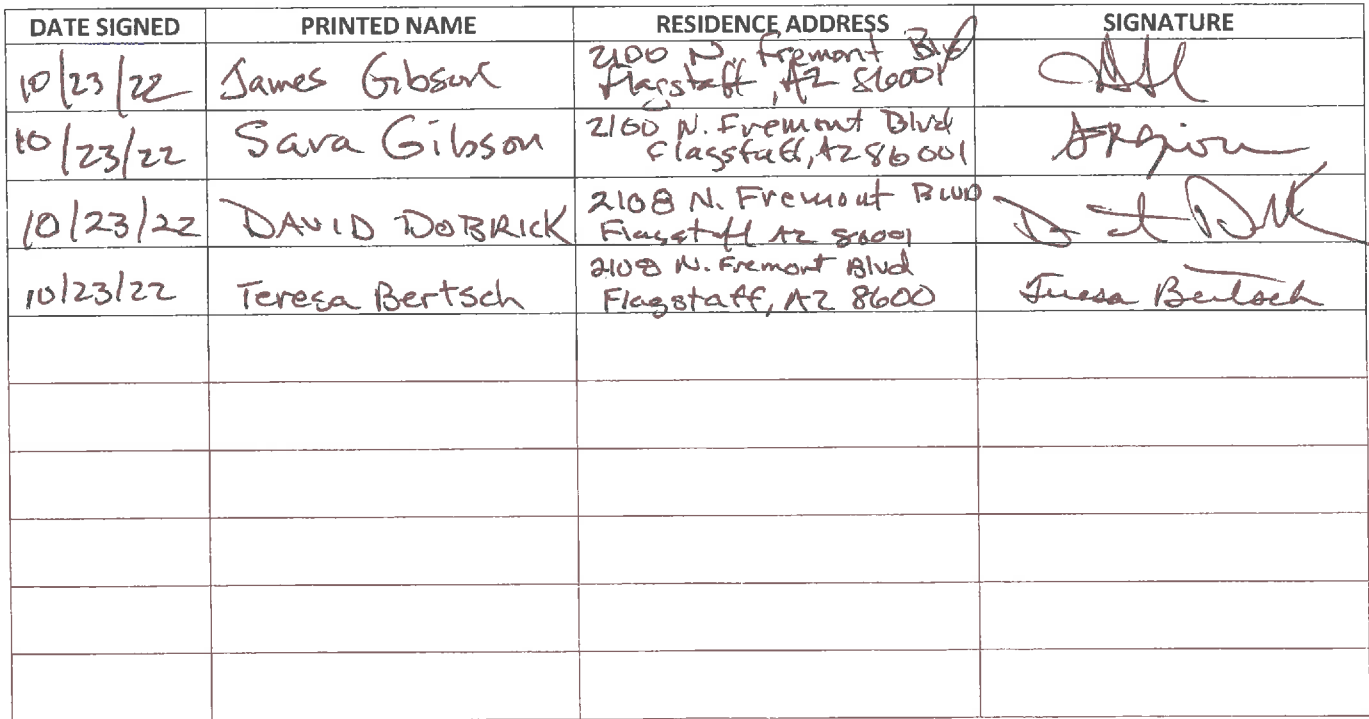 DATE SIGNED PRINTED NAME RESIDENCE ADDRESS SIGNATURE
10/23/22 James Gibson 2100 N. Fremont Blvd
Flagstaff, AZ 86001
10/23/22 Sara Gibson 2100 N. Fremont Blvd
Flagstaff, AZ 86001
10/23/22 DAVID DOBRICK 2108 N. Fremont BLVD
Flagstaff AZ 86001
10/23/22 Teresa Bertsch 2108 N. Fremont Blvd Teresa Bertsch
Flagstaff, AZ 8600